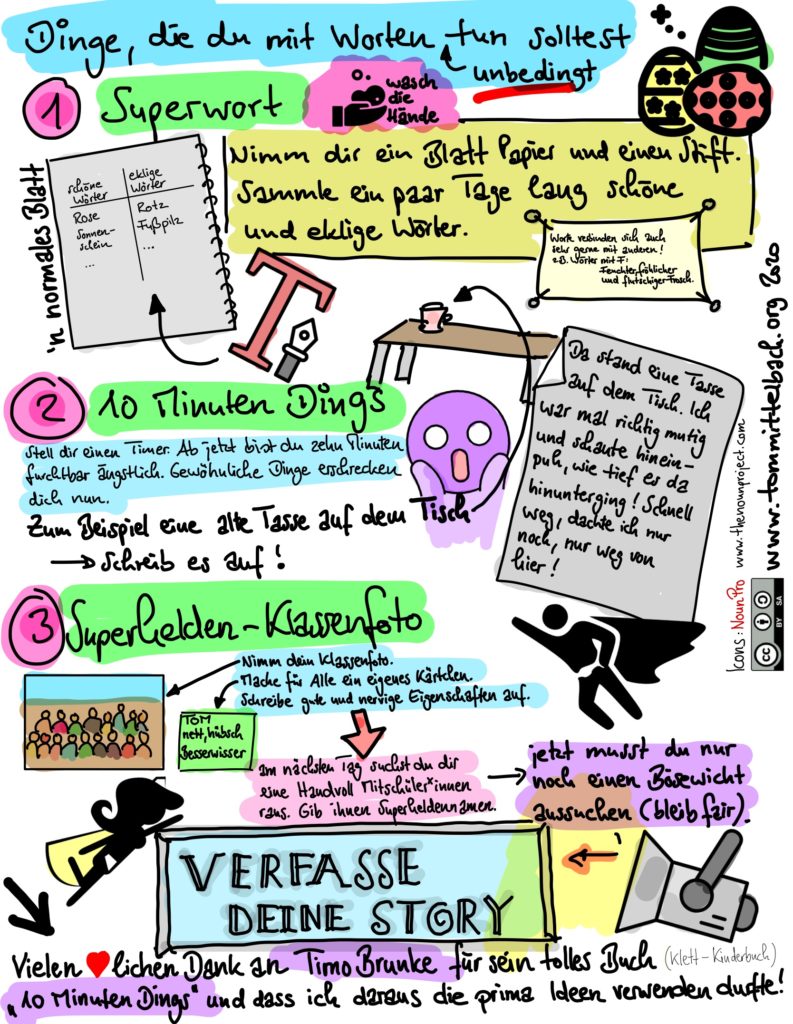 Dinge, die du mit Worten tun solltest
unbedingt
1 Superwort
wasch
die
Hände
'n normales Blatt
schöne
Wörter
eklige
Wörter
Rose
Sonnen-
schein
...
Rotz
Fußpilz
...
Nimm dir ein Blatt Papier und einen Stift.
Sammle ein paar Tage lang schöne
und eklige Wörter.
Worte verbinden sich auch
sehr gerne mit anderen!
z.B. Wörter mit F:
Feuchter, fröhlicher
und flutschiger Frosch.
T
2 10 Minuten Dings
Stell dir einen Timer. Ab jetzt bist du zehn Minuten
furchtbar ängstlich. Gewöhnliche Dinge erschrecken
dich nun.
Zum Beispiel eine alte Tasse auf dem Tisch
→ Schreib es auf!
Da stand eine Tasse
auf dem Tisch. Ich
war mal richtig mutig
und schaute hinein-
puh, wie tief es da
hinunterging! Schnell
weg, dachte ich nur
noch, nur weg von
hier!
Icons: NounPro www.thenounproject.com
www.tommittelbach.org 2020
cc BY SA
3 Superhelden-Klassenfoto
Nimm dein Klassenfoto.
Mache für Alle ein eigenes Kärtchen.
Schreibe gute und nervige Eigenschaften auf.
TOM
nett, hübsch
Besserwisser
am nächsten Tag suchst du dir
eine Handvoll Mitschüler*innen
raus. Gib ihnen Superheldennamen.
jetzt musst du nur
noch einen Bösewicht
aussuchen (bleib fair).
VERFASSE
DEINE STORY
Vielen ♥lichen Dank an Timo Brunke für sein tolles Buch (Klett-Kinderbuch)
„10 Minuten Dings" und dass ich daraus die prima Ideen verwenden durfte!